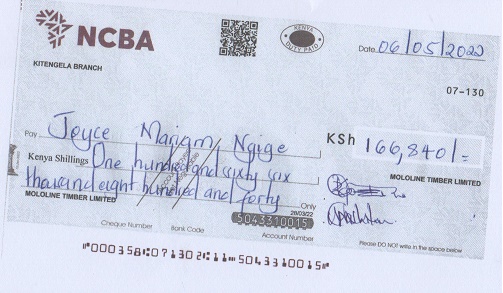 NCBA
KENYA
DUTY PAID
Date 06/05/2022
KITENGELA BRANCH
07-130
Pay Joyce Mariam Ngige
KSh 166,840/=
Kenya Shillings One hundred and sixty six
thousand eight hundred and forty Only
MOLOLINE TIMBER LIMITED
MOLOLINE TIMBER LIMITED
28/03/22
5043310015
Cheque Number Bank Code Account Number
Please DO NOT write in the space below
"000358"071302"5043310015"